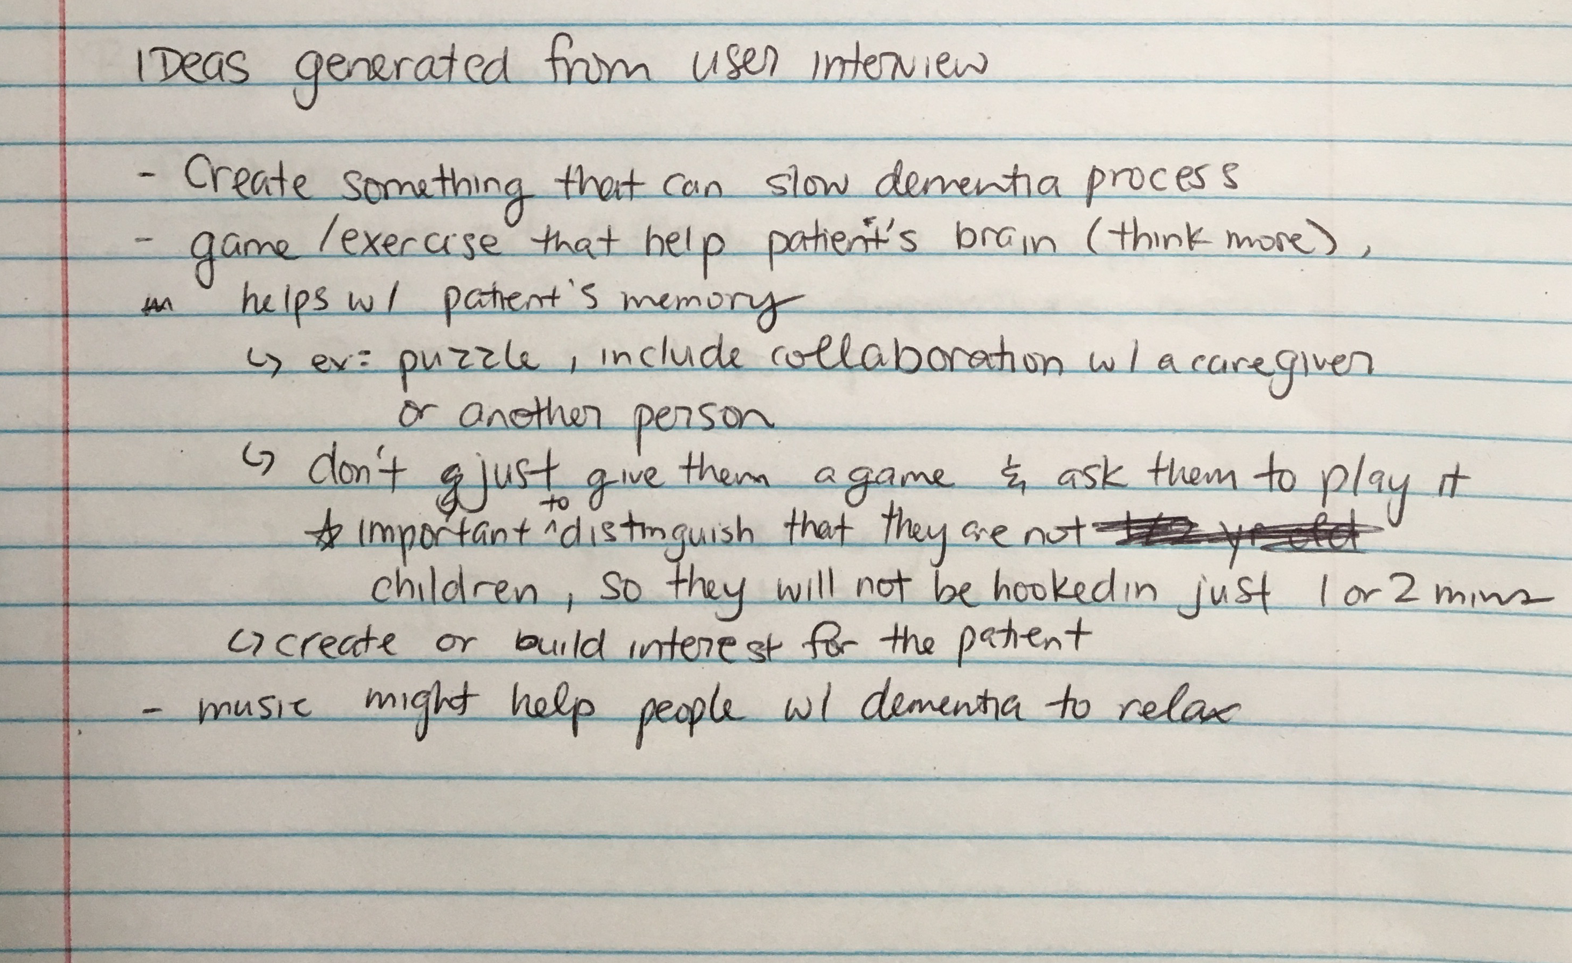 IDeas generated from user interview
- Create something that can slow dementia process
- game/exercise that help patient's brain (think more),
helps w/ patient's memory
↳ ex: puzzle, include collaboration w/ a caregiver
or another person
↳ don't just give them a game & ask them to play it
☆ important ^to distinguish that they are not
children, so they will not be hooked in just 1 or 2 mins
↳ create or build interest for the patient
- music might help people w/ dementia to relax